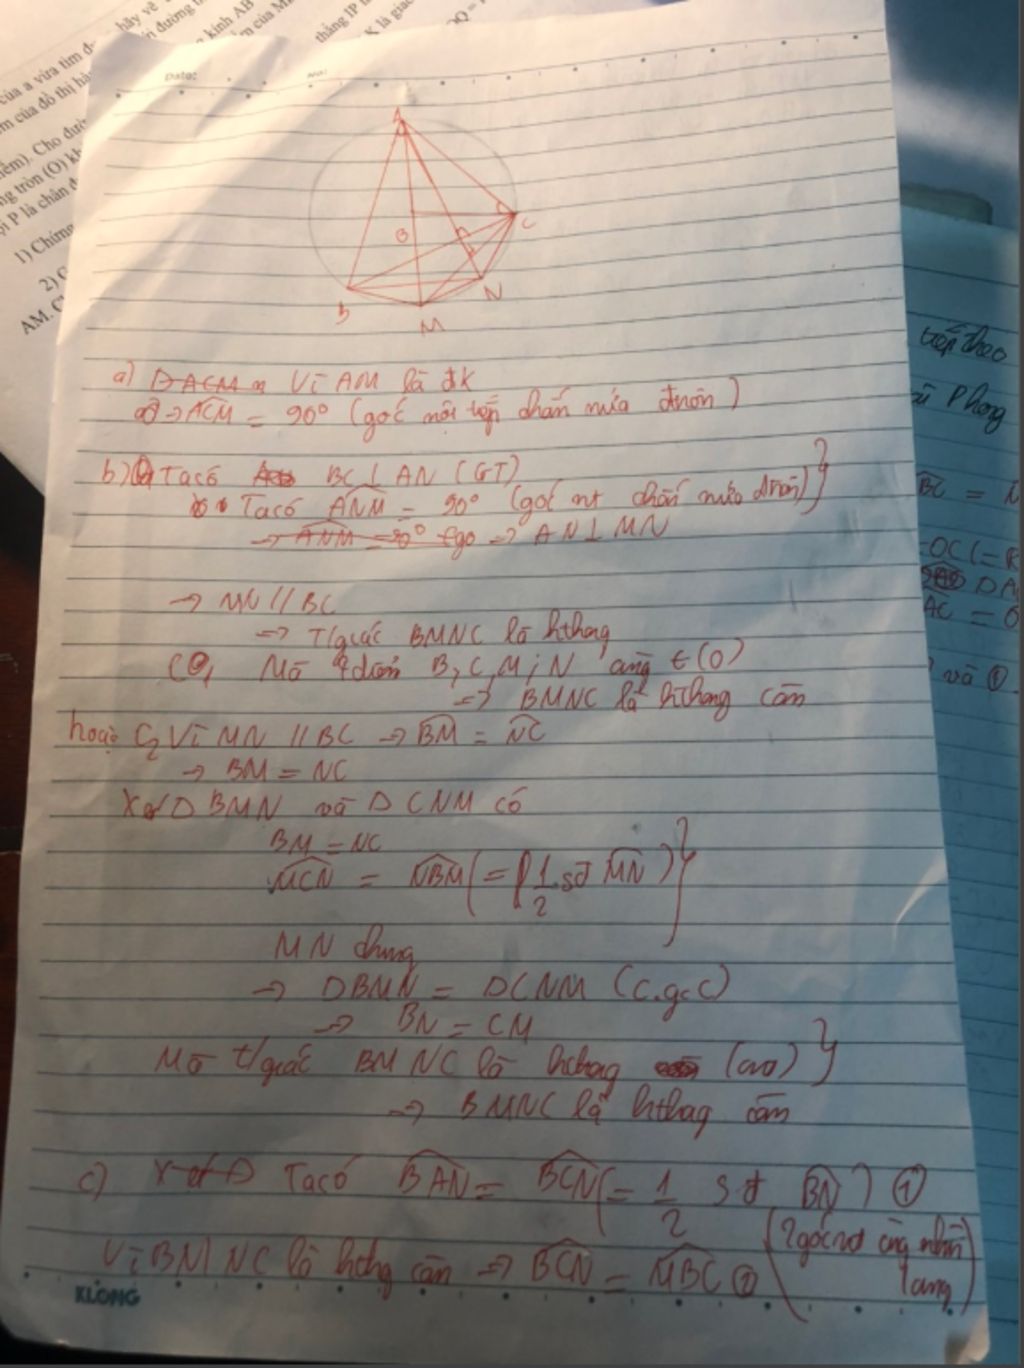 của a vừa tìm được hãy vẽ
m của đồ thị hà
kính AB
thẳng IP
K là giao
iểm). Cho đườ
ng tròn (O)
ọi P là chân đ
1) Chứng
2)
AM.
Date:
No:
A
O
C
B
N
M
a) Vì AM là đk
=> ACM = 90° (góc nội tiếp chắn nửa đtròn)
b) Ta có BC ⊥ AN (GT)
Ta có ANM = 90° (góc nt chắn nửa đtròn)
=> AN ⊥ MN
-> MN // BC
=> T/giác BMNC là hthang
C1 Mà 4 điểm B, C, M, N cùng ∈ (O)
=> BMNC là hthang cân
hoặc C2 Vì MN // BC -> BM = NC
-> BM = NC
Xét Δ BMN và Δ CNM có
BM = NC
MCN = NBM (= 1/2 sđ MN)
MN chung
-> ΔBMN = ΔCNM (c.g.c)
=> BN = CM
Mà t/giác BMNC là hthang (cmt)
=> BMNC là hthang cân
c) Ta có BAN = BCN (= 1/2 sđ BN) ①
(2 góc nt cùng chắn 1 cung)
Vì BMNC là hthg cân => BCN = MBC ②
KLONG
tiếp theo
Phong
BC =
OC (= R
AC =
và ①